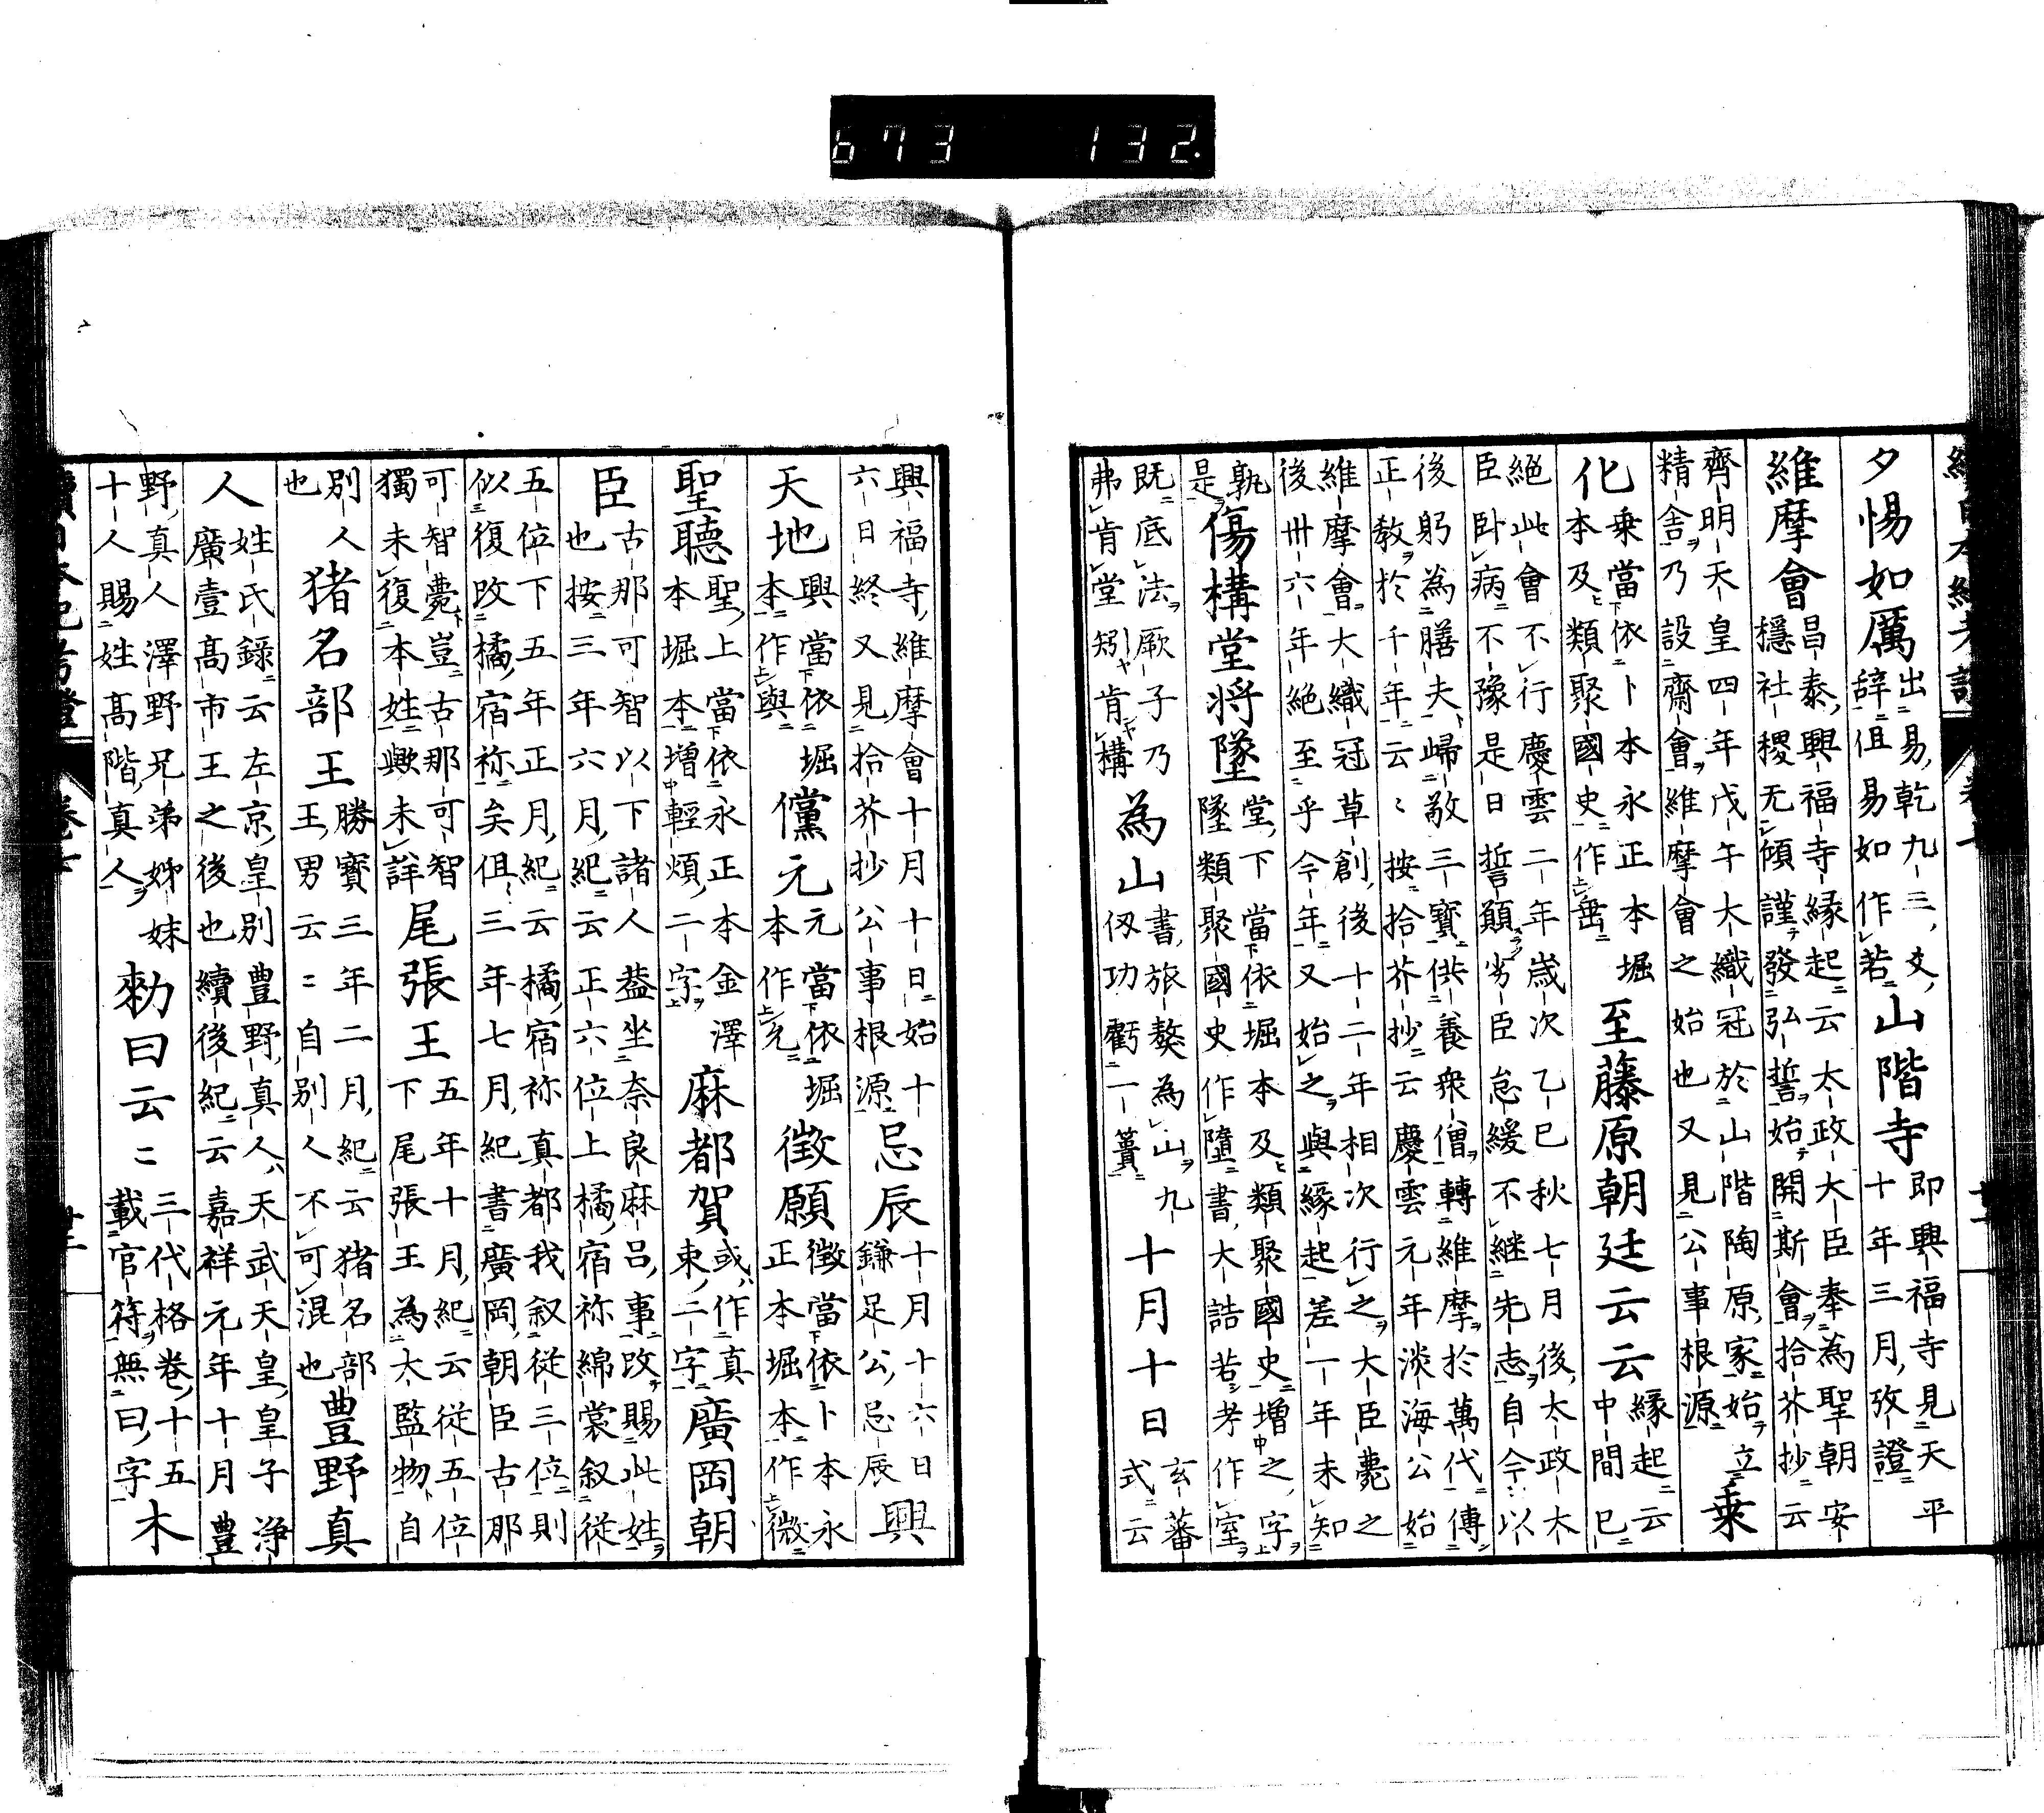 夕惕如厲出易乾九三爻辭但易如作若山階寺即興福寺見天平十年三月攷證
維摩會昌泰興福寺縁起云太政大臣奉為聖朝安穩社稷无傾謹發弘誓始開斯會拾芥抄云
齊明天皇四年戊午大織冠於山階陶原家始立精舎乃設齋會維摩會之始也又見公事根源乗
化乗當依卜本永正本堀本及類聚國史作埀至藤原朝廷云云縁起云中間已
絶此會不行慶雲二年歳次乙巳秋七月後太政大臣卧病不豫是日誓願劣臣怠緩不継先志自今以
後躬為膳夫歸敬三寳供養衆僧轉維摩於萬代傳正教於千年云〻按拾芥抄云慶雲元年淡海公始
維摩會大織冠草創後十二年相次行之大臣薨之後丗六年絶至乎今年又始之與縁起差一年未知
孰是傷構堂将墜堂下當依堀本及類聚國史増之字墜類聚國史作墮書大誥若考作室
既底法厥子乃弗肯堂矧肯構為山書旅獒為山九仭功虧一簣十月十日玄蕃式云
興福寺維摩會十月十日始十六日終又見拾芥抄公事根源忌辰十月十六日鎌足公忌辰興
天地興當依堀本作與儻元元當依堀本作允徴願徴當依卜本永正本堀本作微
聖聽聖上當依永正本金澤本堀本増輕煩二字麻都賀或作真束二字廣岡朝
臣古那可智以下諸人葢坐奈良麻呂事改賜此姓也按三年六月紀云正六位上橘宿祢綿裳叙從
五位下五年正月紀云橘宿祢真都我叙従三位則似復改橘宿祢矣但三年七月紀書廣岡朝臣古那
可智薨豈古那可智獨未復本姓歟未詳尾張王五年十月紀云従五位下尾張王為大監物自
別人也猪名部王勝寳三年二月紀云猪名部王王男云〻自別人不可混也豊野真
人姓氏録云左京皇別豊野真人天武天皇皇子浄廣壹髙市王之後也續後紀云嘉祥元年十月豊
野真人澤野兄弟姊妹十人賜姓髙階真人勑曰云〻三代格卷十五載官符無曰字木